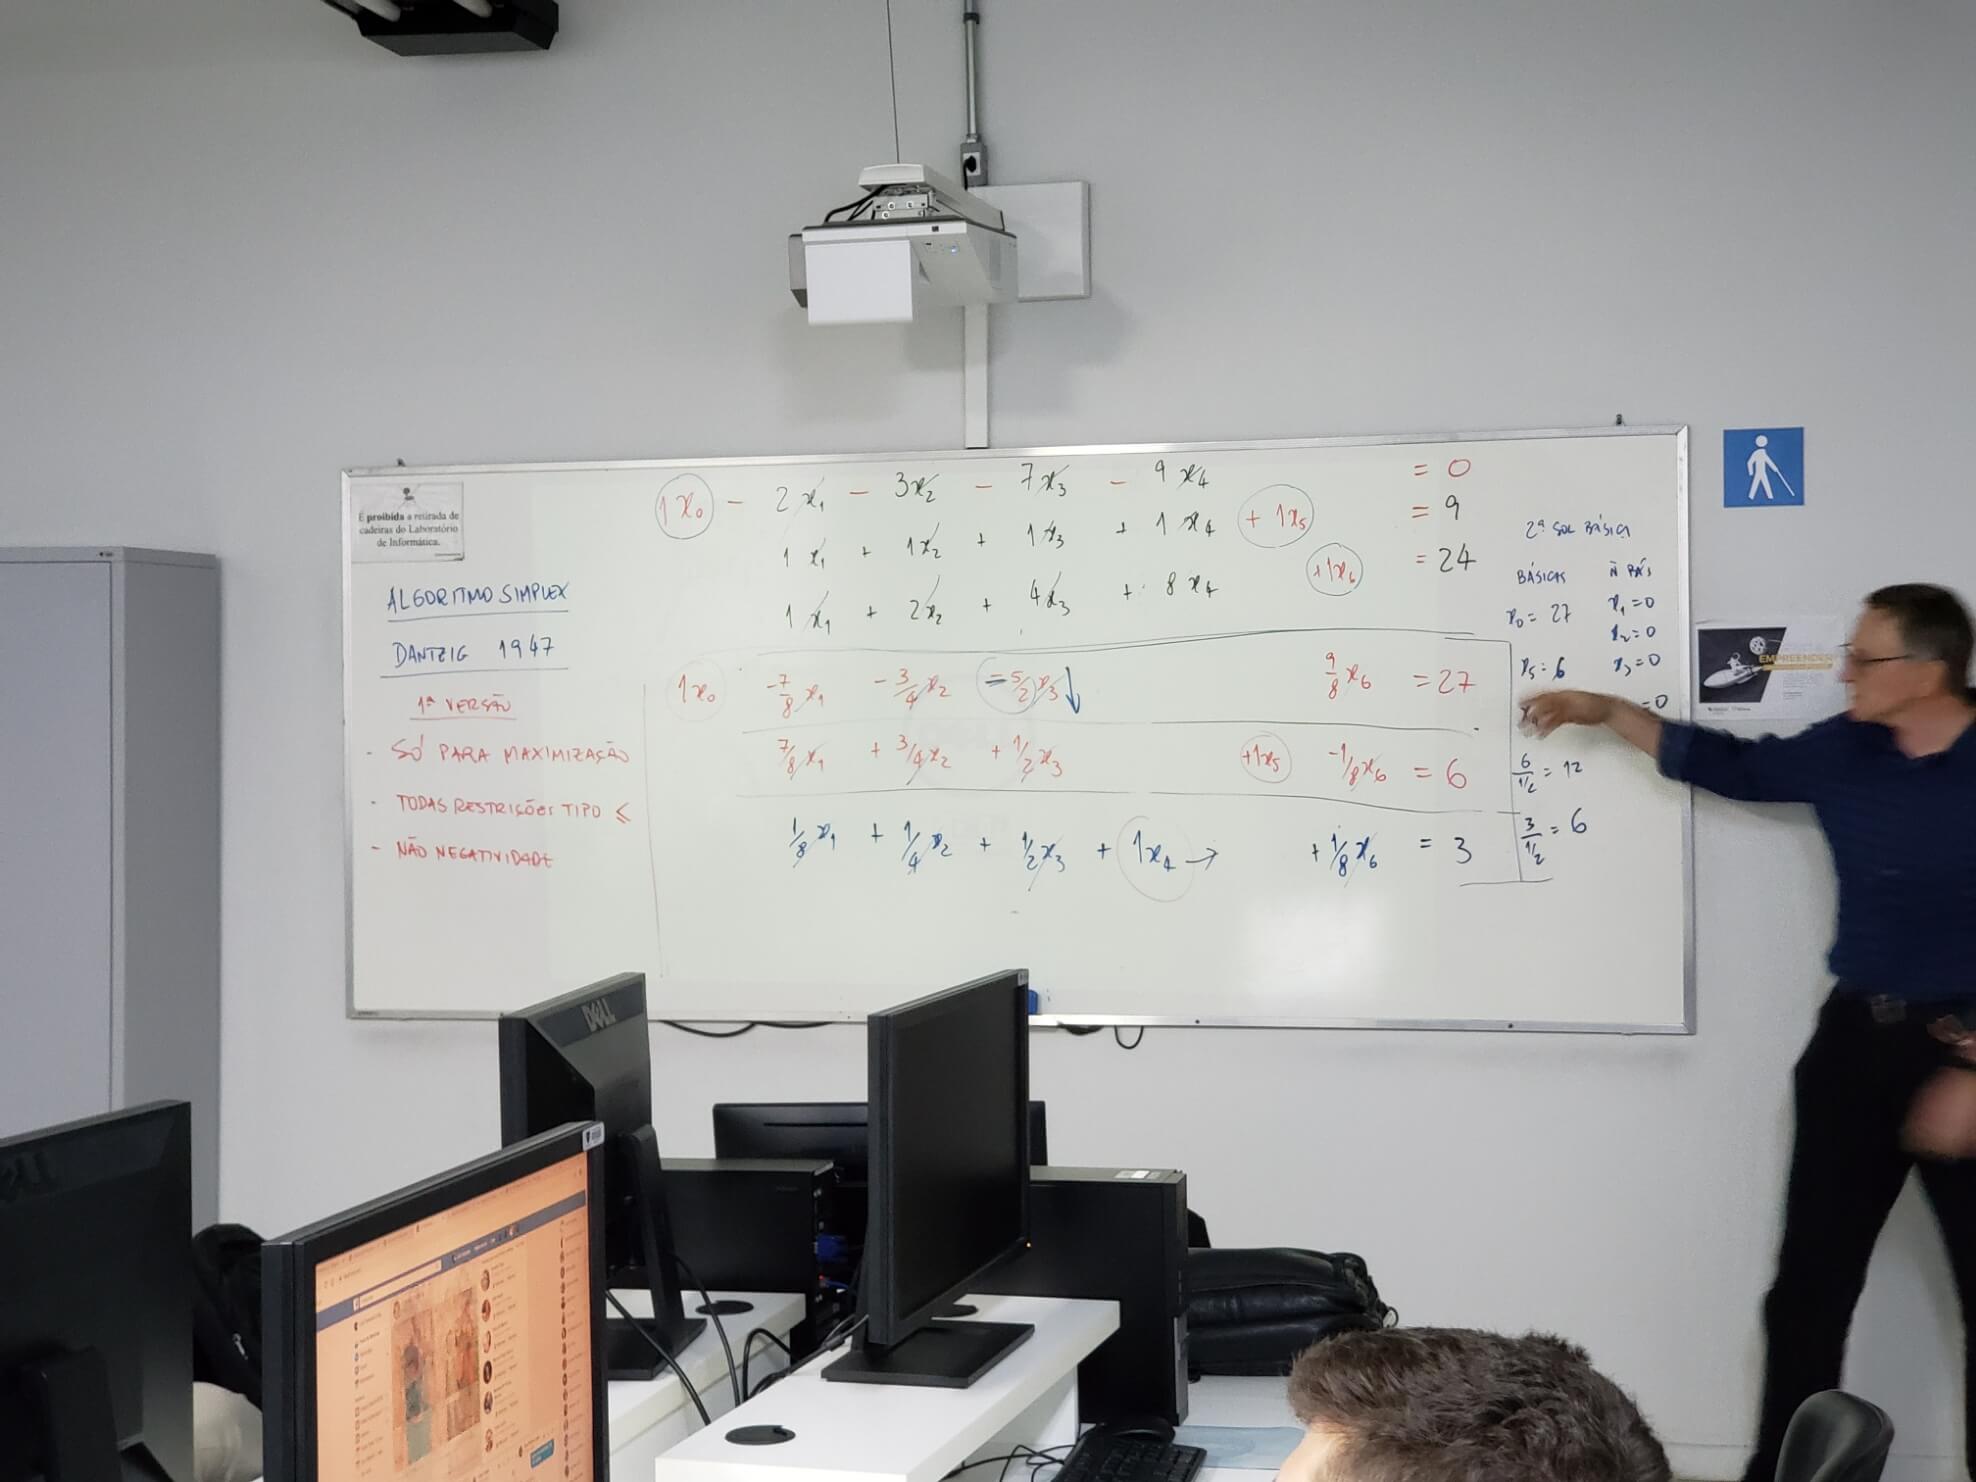 É proibida a retirada de
cadeiras do Laboratório
de Informática.
ALGORITMO SIMPLEX
DANTZIG 1947
1ª VERSÃO
- SÓ PARA MAXIMIZAÇÃO
- TODAS RESTRIÇÕES TIPO ≤
- NÃO NEGATIVIDADE
1x₀ - 2x₁ - 3x₂ - 7x₃ - 9x₄ = 0
1x₁ + 1x₂ + 1x₃ + 1x₄ + 1x₅ = 9
1x₁ + 2x₂ + 4x₃ + 8x₄ +1x₆ = 24
1x₀ -7/8x₁ -3/4x₂ -5/2x₃ ↓ 9/8x₆ = 27
7/8x₁ + 3/4x₂ + 1/2x₃ +1x₅ -1/8x₆ = 6
1/8x₁ + 1/4x₂ + 1/2x₃ + 1x₄ → +1/8x₆ = 3
2ª SOL BÁSICA
BÁSICAS Ñ BÁS
x₀ = 27 x₁=0
x₂=0
x₅=6 x₃=0
=0
6/1/2 = 12
3/1/2 = 6
EMPREENDER
DELL